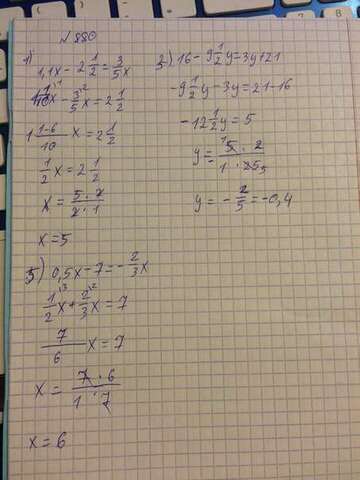 N 880
1)
1,1x - 2 1/2 = 3/5 x
1 1/10 x - 3/5 x = 2 1/2
1 (1-6)/10 x = 2 1/2
1/2 x = 2 1/2
x = (5 · 2)/(2 · 1)
x = 5
3) 16 - 9 1/2 y = 3y + 21
-9 1/2 y - 3y = 21 - 16
-12 1/2 y = 5
y = (5 · 2)/(1 · 25)
y = - 2/5 = -0,4
5) 0,5x - 7 = - 2/3 x
1/2 x + 2/3 x = 7
7/6 x = 7
x = (7 · 6)/(1 · 7)
x = 6